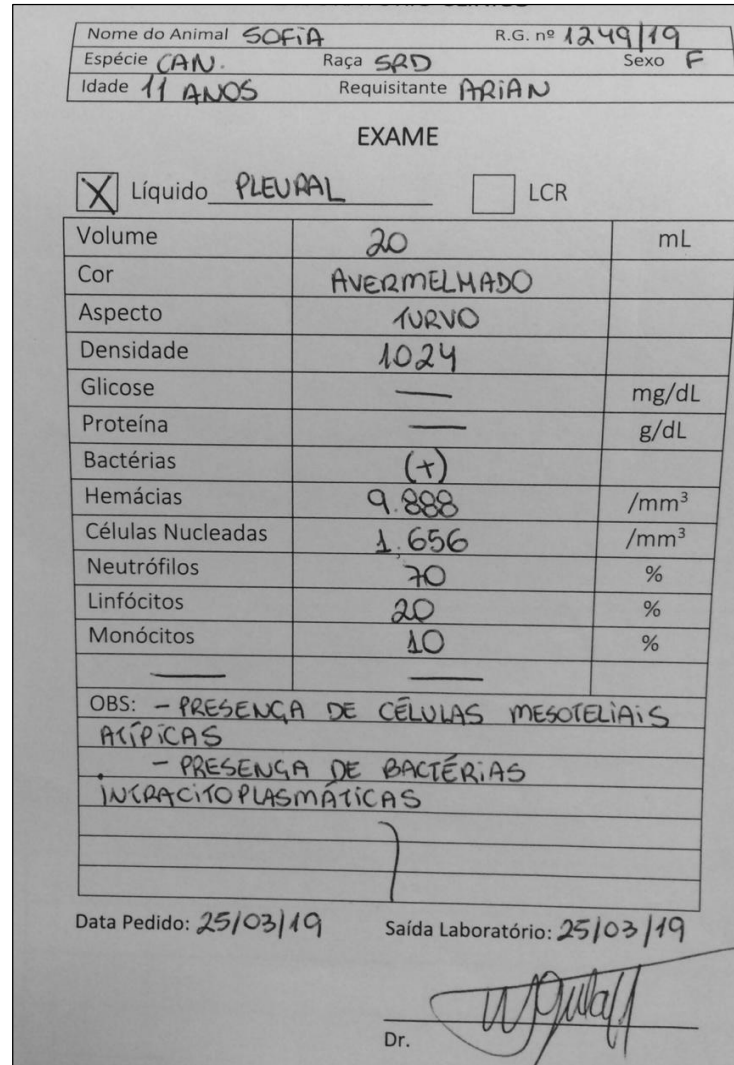 Nome do Animal SOFiA R.G. nº 1249/19
Espécie CAN. Raça SRD Sexo F
Idade 11 ANOS Requisitante ARiAN
EXAME
X Líquido PLEURAL LCR
Volume 20 mL
Cor AVERMELHADO
Aspecto TURVO
Densidade 1024
Glicose — mg/dL
Proteína — g/dL
Bactérias (+)
Hemácias 9.888 /mm³
Células Nucleadas 1.656 /mm³
Neutrófilos 70 %
Linfócitos 20 %
Monócitos 10 %
— —
OBS: - PRESENÇA DE CÉLULAS MESOTELIAiS
ATÍPICAS
- PRESENÇA DE BACTÉRiAS
INTRACITOPLASMÁTICAS
Data Pedido: 25/03/19 Saída Laboratório: 25/03/19
Dr.